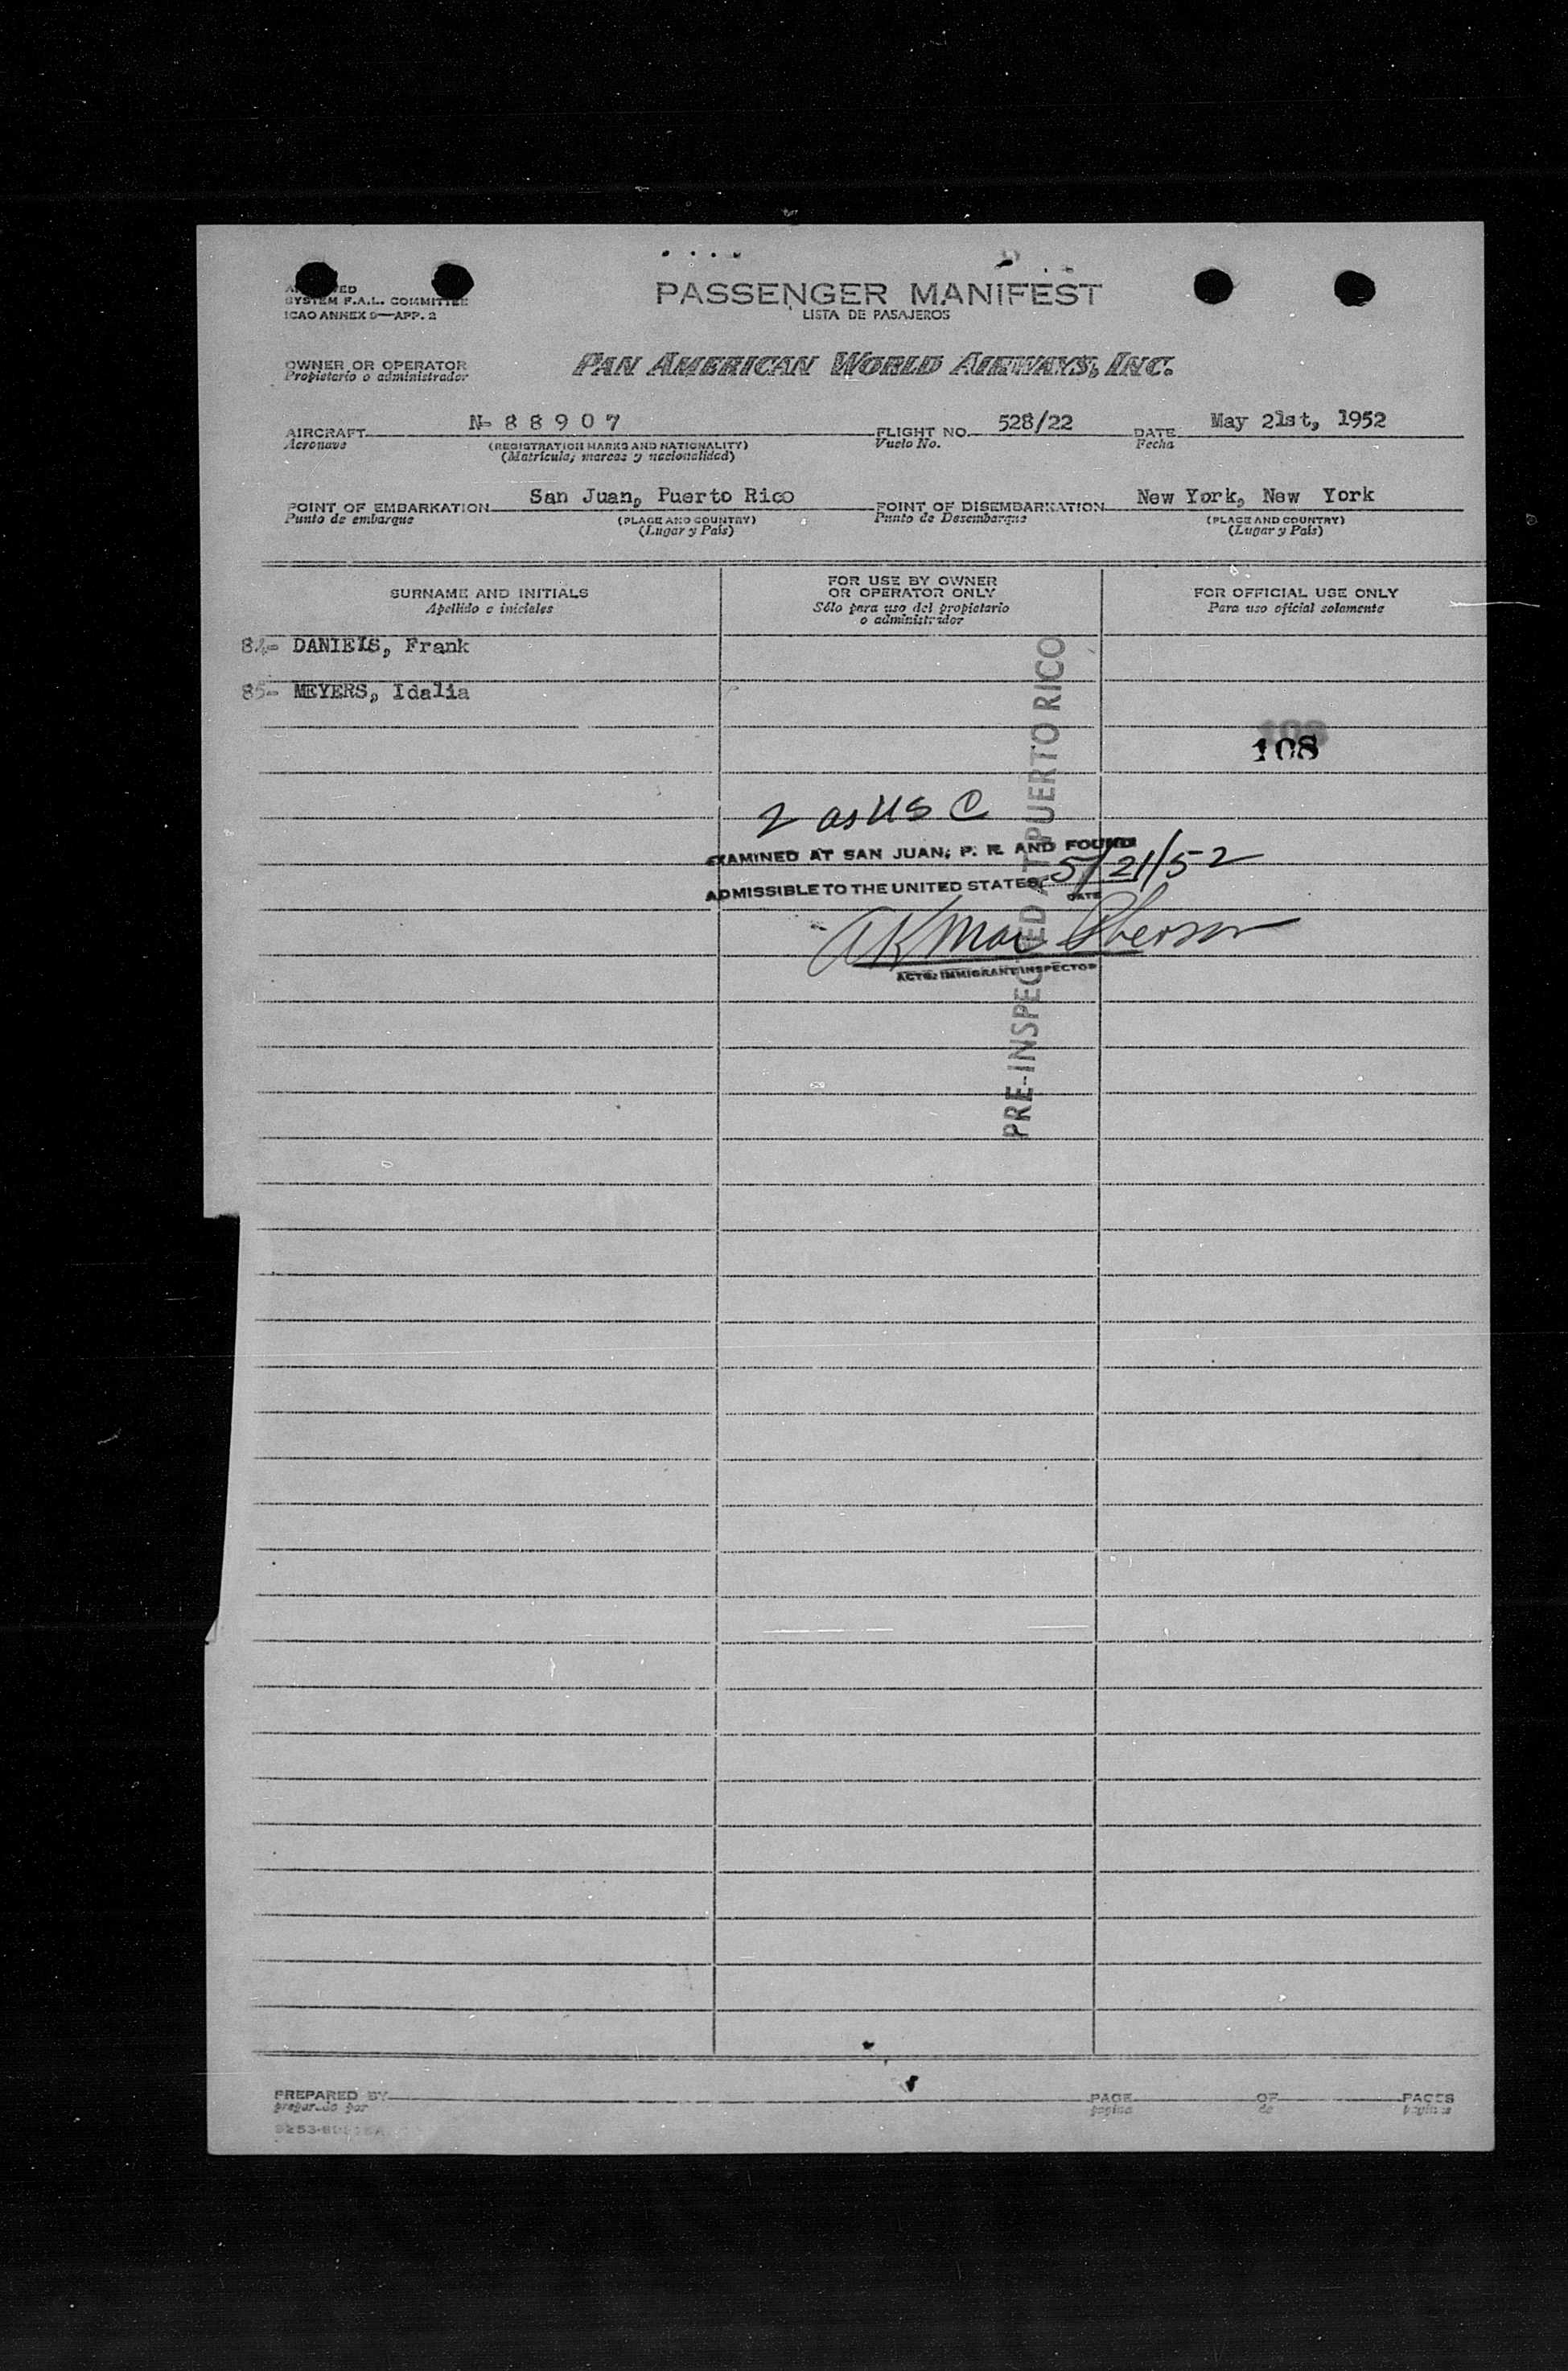 SYSTEM F.A.L. COMMITTEE
ICAO ANNEX 9—APP. 2
PASSENGER MANIFEST
LISTA DE PASAJEROS
OWNER OR OPERATOR
Propietario o administrador
PAN AMERICAN WORLD AIRWAYS, INC.
AIRCRAFT N-88907 FLIGHT NO. 528/22 DATE May 21st, 1952
Aeronave (REGISTRATION MARKS AND NATIONALITY) Vuelo No. Fecha
(Matrícula, marcas y nacionalidad)
POINT OF EMBARKATION San Juan, Puerto Rico POINT OF DISEMBARKATION New York, New York
Punto de embarque (PLACE AND COUNTRY) Punto de Desembarque (PLACE AND COUNTRY)
(Lugar y País) (Lugar y País)
SURNAME AND INITIALS
Apellido e iniciales
FOR USE BY OWNER
OR OPERATOR ONLY
Sólo para uso del propietario
o administrador
FOR OFFICIAL USE ONLY
Para uso oficial solamente
84- DANIELS, Frank
85- MEYERS, Idalia
108
2 as US C
EXAMINED AT SAN JUAN, P. R. AND FOUND
ADMISSIBLE TO THE UNITED STATES 5/21/52
DATE
AK MacPherson
ACTG. IMMIGRANT INSPECTOR
PRE-INSPECTED AT PUERTO RICO
PREPARED BY PAGE OF PAGES
preparado por pagina de paginas